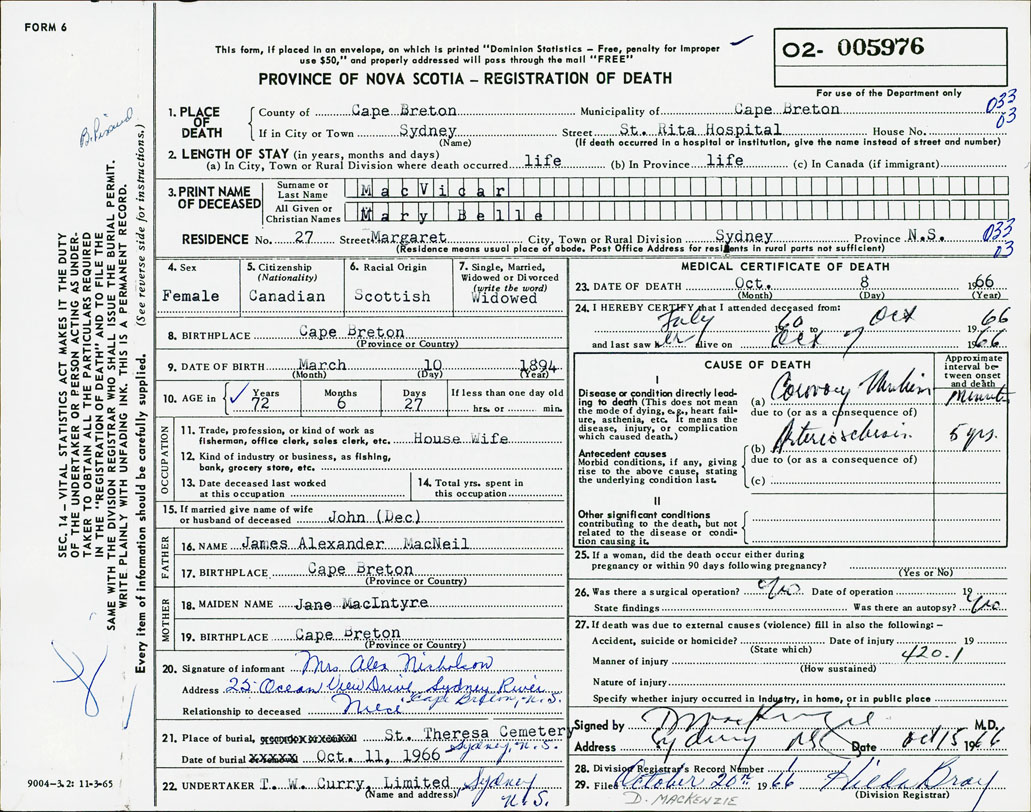 FORM 6
This form, if placed in an envelope, on which is printed "Dominion Statistics – Free, penalty for improper
use $50," and properly addressed will pass through the mail "FREE"
PROVINCE OF NOVA SCOTIA – REGISTRATION OF DEATH
02- 005976
For use of the Department only
033
03
1. PLACE OF DEATH
County of Cape Breton Municipality of Cape Breton
If in City or Town Sydney Street St. Rita Hospital House No.
(Name) (If death occurred in a hospital or institution, give the name instead of street and number)
2. LENGTH OF STAY (in years, months and days)
(a) In City, Town or Rural Division where death occurred life (b) In Province life (c) In Canada (if immigrant)
3. PRINT NAME OF DECEASED
Surname or Last Name MacVicar
All Given or Christian Names Mary Belle
RESIDENCE No. 27 Street Margaret City, Town or Rural Division Sydney Province N.S. 033
(Residence means usual place of abode. Post Office Address for residents in rural parts not sufficient) 03
4. Sex Female
5. Citizenship (Nationality) Canadian
6. Racial Origin Scottish
7. Single, Married, Widowed or Divorced (write the word) Widowed
8. BIRTHPLACE Cape Breton
(Province or Country)
9. DATE OF BIRTH March 10 1894
(Month) (Day) (Year)
10. AGE in Years 72 Months 6 Days 27 If less than one day old hrs. or min.
OCCUPATION
11. Trade, profession, or kind of work as
fisherman, office clerk, sales clerk, etc. House Wife
12. Kind of industry or business, as fishing,
bank, grocery store, etc.
13. Date deceased last worked
at this occupation
14. Total yrs. spent in
this occupation
15. If married give name of wife
or husband of deceased John (Dec)
FATHER
16. NAME James Alexander MacNeil
17. BIRTHPLACE Cape Breton
(Province or Country)
MOTHER
18. MAIDEN NAME Jane MacIntyre
19. BIRTHPLACE Cape Breton
(Province or Country)
20. Signature of informant Mrs Alex Nicholson
Address 25 Ocean View Drive, Sydney River
Cape Breton, N.S.
Relationship to deceased Niece
21. Place of burial, St. Theresa Cemetery
Sydney, N.S.
Date of burial Oct. 11, 1966
22. UNDERTAKER T. W. Curry, Limited Sydney
(Name and address) N.S.
MEDICAL CERTIFICATE OF DEATH
23. DATE OF DEATH Oct. 8 1966
(Month) (Day) (Year)
24. I HEREBY CERTIFY that I attended deceased from:
July 1960 to Oct 1966
and last saw her alive on Oct 7 1966
CAUSE OF DEATH
Approximate interval between onset and death
I
Disease or condition directly leading to death (This does not mean the mode of dying, e.g., heart failure, asthenia, etc. It means the disease, injury, or complication which caused death.)
(a) Coronary minutes
due to (or as a consequence of)
(b) 5 yrs.
Antecedent causes
Morbid conditions, if any, giving rise to the above cause, stating the underlying condition last.
due to (or as a consequence of)
(c)
II
Other significant conditions
contributing to the death, but not
related to the disease or condition causing it.
25. If a woman, did the death occur either during
pregnancy or within 90 days following pregnancy?
(Yes or No)
26. Was there a surgical operation? No Date of operation 19
State findings Was there an autopsy? No
27. If death was due to external causes (violence) fill in also the following: –
Accident, suicide or homicide? Date of injury 19
(State which) 420.1
Manner of injury
(How sustained)
Nature of injury
Specify whether injury occurred in Industry, in home, or in public place
Signed by D MacKenzie M.D.
Address Sydney NS Date Oct 15 1966
28. Division Registrar's Record Number
29. Filed October 20th 1966 Hilda Bray
D. MACKENZIE (Division Registrar)
SEC. 14 – VITAL STATISTICS ACT MAKES IT THE DUTY
OF THE UNDERTAKER OR PERSON ACTING AS UNDER-
TAKER TO OBTAIN ALL THE PARTICULARS REQUIRED
IN THE "REGISTRATION OF DEATH" AND TO FILE THE
SAME WITH THE DIVISION REGISTRAR WHO SHALL ISSUE THE BURIAL PERMIT.
WRITE PLAINLY WITH UNFADING INK. THIS IS A PERMANENT RECORD.
Every item of information should be carefully supplied. (See reverse side for instructions.)
9004-3.2: 11-3-65